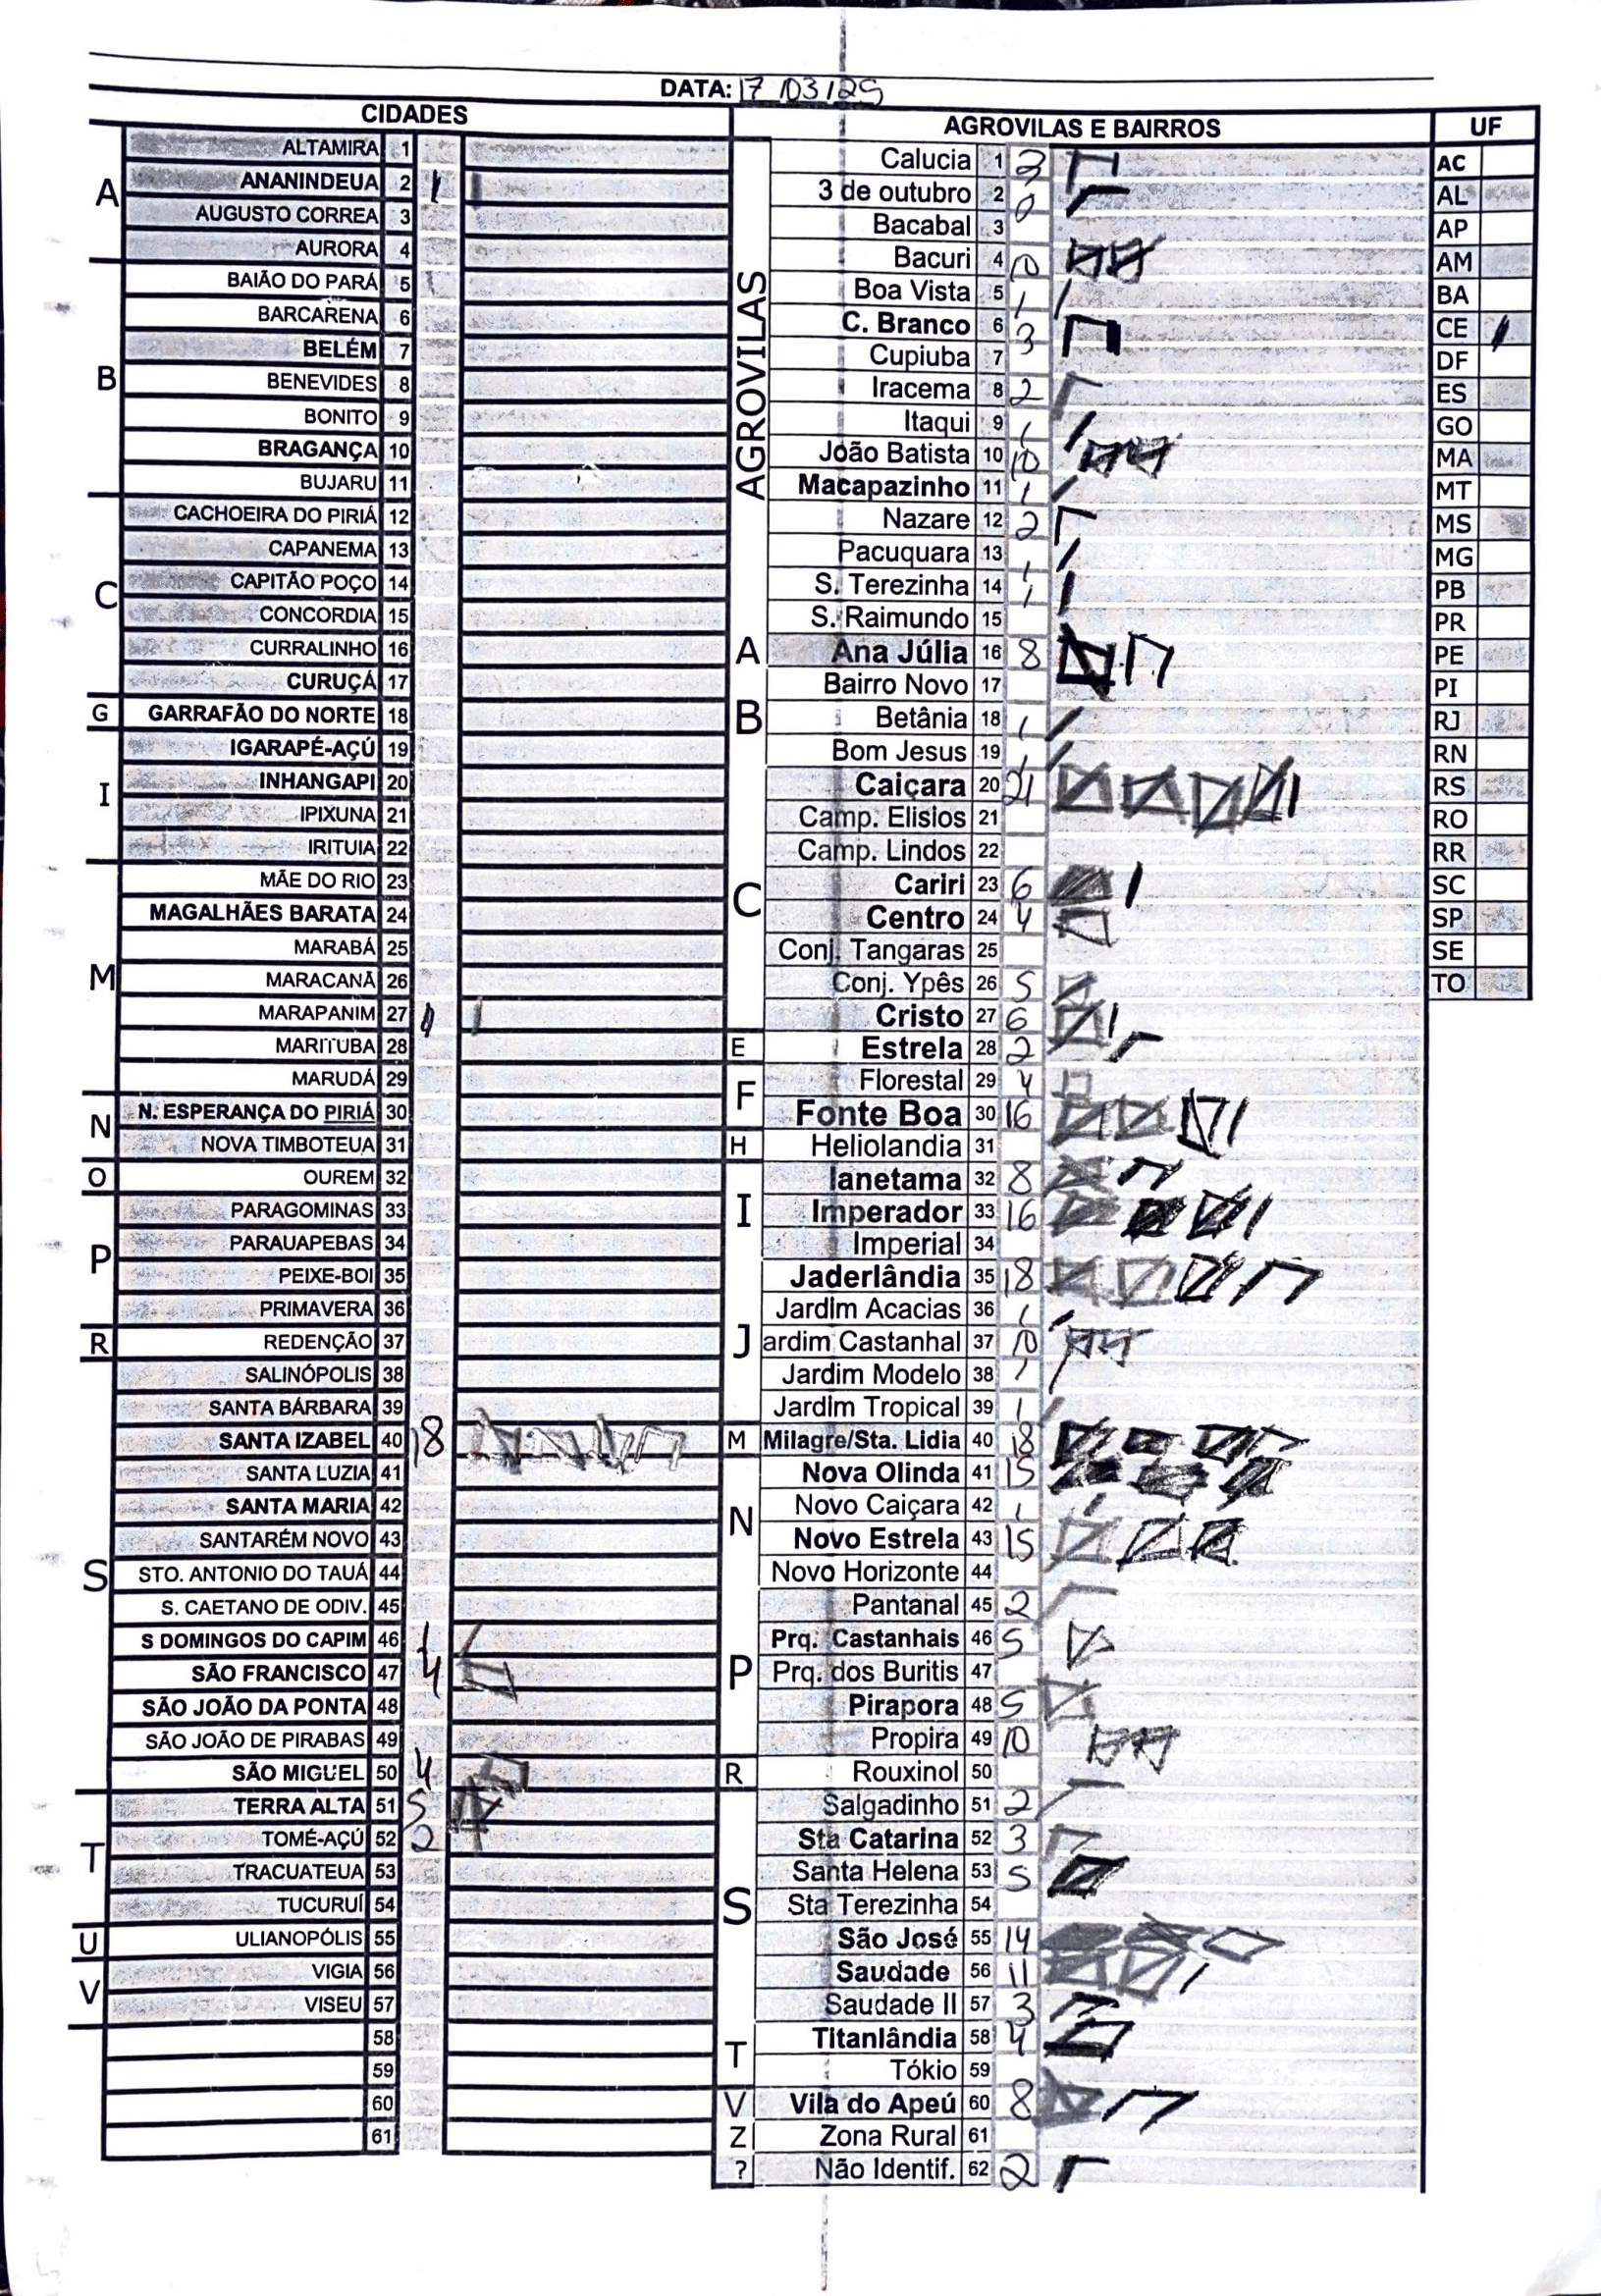 DATA: 17/03/25
CIDADES
AGROVILAS E BAIRROS
UF
A
ALTAMIRA 1
ANANINDEUA 2 1
AUGUSTO CORREA 3
AURORA 4
B
BAIÃO DO PARÁ 5
BARCARENA 6
BELÉM 7
BENEVIDES 8
BONITO 9
BRAGANÇA 10
BUJARU 11
C
CACHOEIRA DO PIRIÁ 12
CAPANEMA 13
CAPITÃO POÇO 14
CONCORDIA 15
CURRALINHO 16
CURUÇÁ 17
G
GARRAFÃO DO NORTE 18
I
IGARAPÉ-AÇÚ 19
INHANGAPI 20
IPIXUNA 21
IRITUIA 22
M
MÃE DO RIO 23
MAGALHÃES BARATA 24
MARABÁ 25
MARACANÃ 26
MARAPANIM 27 1
MARITUBA 28
MARUDÁ 29
N
N. ESPERANÇA DO PIRIÁ 30
NOVA TIMBOTEUA 31
O
OUREM 32
P
PARAGOMINAS 33
PARAUAPEBAS 34
PEIXE-BOI 35
PRIMAVERA 36
R
REDENÇÃO 37
S
SALINÓPOLIS 38
SANTA BÁRBARA 39
SANTA IZABEL 40 18
SANTA LUZIA 41
SANTA MARIA 42
SANTARÉM NOVO 43
STO. ANTONIO DO TAUÁ 44
S. CAETANO DE ODIV. 45
S DOMINGOS DO CAPIM 46 1
SÃO FRANCISCO 47 4
SÃO JOÃO DA PONTA 48
SÃO JOÃO DE PIRABAS 49
SÃO MIGUEL 50 4
T
TERRA ALTA 51 5
TOMÉ-AÇÚ 52 2
TRACUATEUA 53
TUCURUÍ 54
U
ULIANOPÓLIS 55
V
VIGIA 56
VISEU 57
58
59
60
61
AGROVILAS
Calucia 1 3
3 de outubro 2
Bacabal 3
Bacuri 4 10
Boa Vista 5 1
C. Branco 6 3
Cupiuba 7
Iracema 8 2
Itaqui 9 1
João Batista 10 10
Macapazinho 11 1
Nazare 12 2
Pacuquara 13 1
S. Terezinha 14 1
S. Raimundo 15
A
Ana Júlia 16 8
B
Bairro Novo 17
Betânia 18 1
Bom Jesus 19 1
C
Caiçara 20 21
Camp. Elisios 21
Camp. Lindos 22
Cariri 23 6
Centro 24 4
Conj. Tangaras 25
Conj. Ypês 26 5
Cristo 27 6
E
Estrela 28 2
F
Florestal 29 4
Fonte Boa 30 16
H
Heliolandia 31
I
Ianetama 32 8
Imperador 33 16
Imperial 34
J
Jaderlândia 35 18
Jardim Acacias 36 1
ardim Castanhal 37 10
Jardim Modelo 38 1
Jardim Tropical 39 1
M
Milagre/Sta. Lidia 40 18
N
Nova Olinda 41 15
Novo Caiçara 42 1
Novo Estrela 43 15
Novo Horizonte 44
P
Pantanal 45 2
Prq. Castanhais 46 5
Prq. dos Buritis 47
Pirapora 48 5
Propira 49 10
R
Rouxinol 50
S
Salgadinho 51 2
Sta Catarina 52 3
Santa Helena 53 5
Sta Terezinha 54
São José 55 14
Saudade 56 11
Saudade II 57 3
T
Titanlândia 58 4
Tókio 59
V
Vila do Apeú 60 8
Z
Zona Rural 61
?
Não Identif. 62 2
AC
AL
AP
AM
BA
CE
DF
ES
GO
MA
MT
MS
MG
PB
PR
PE
PI
RJ
RN
RS
RO
RR
SC
SP
SE
TO